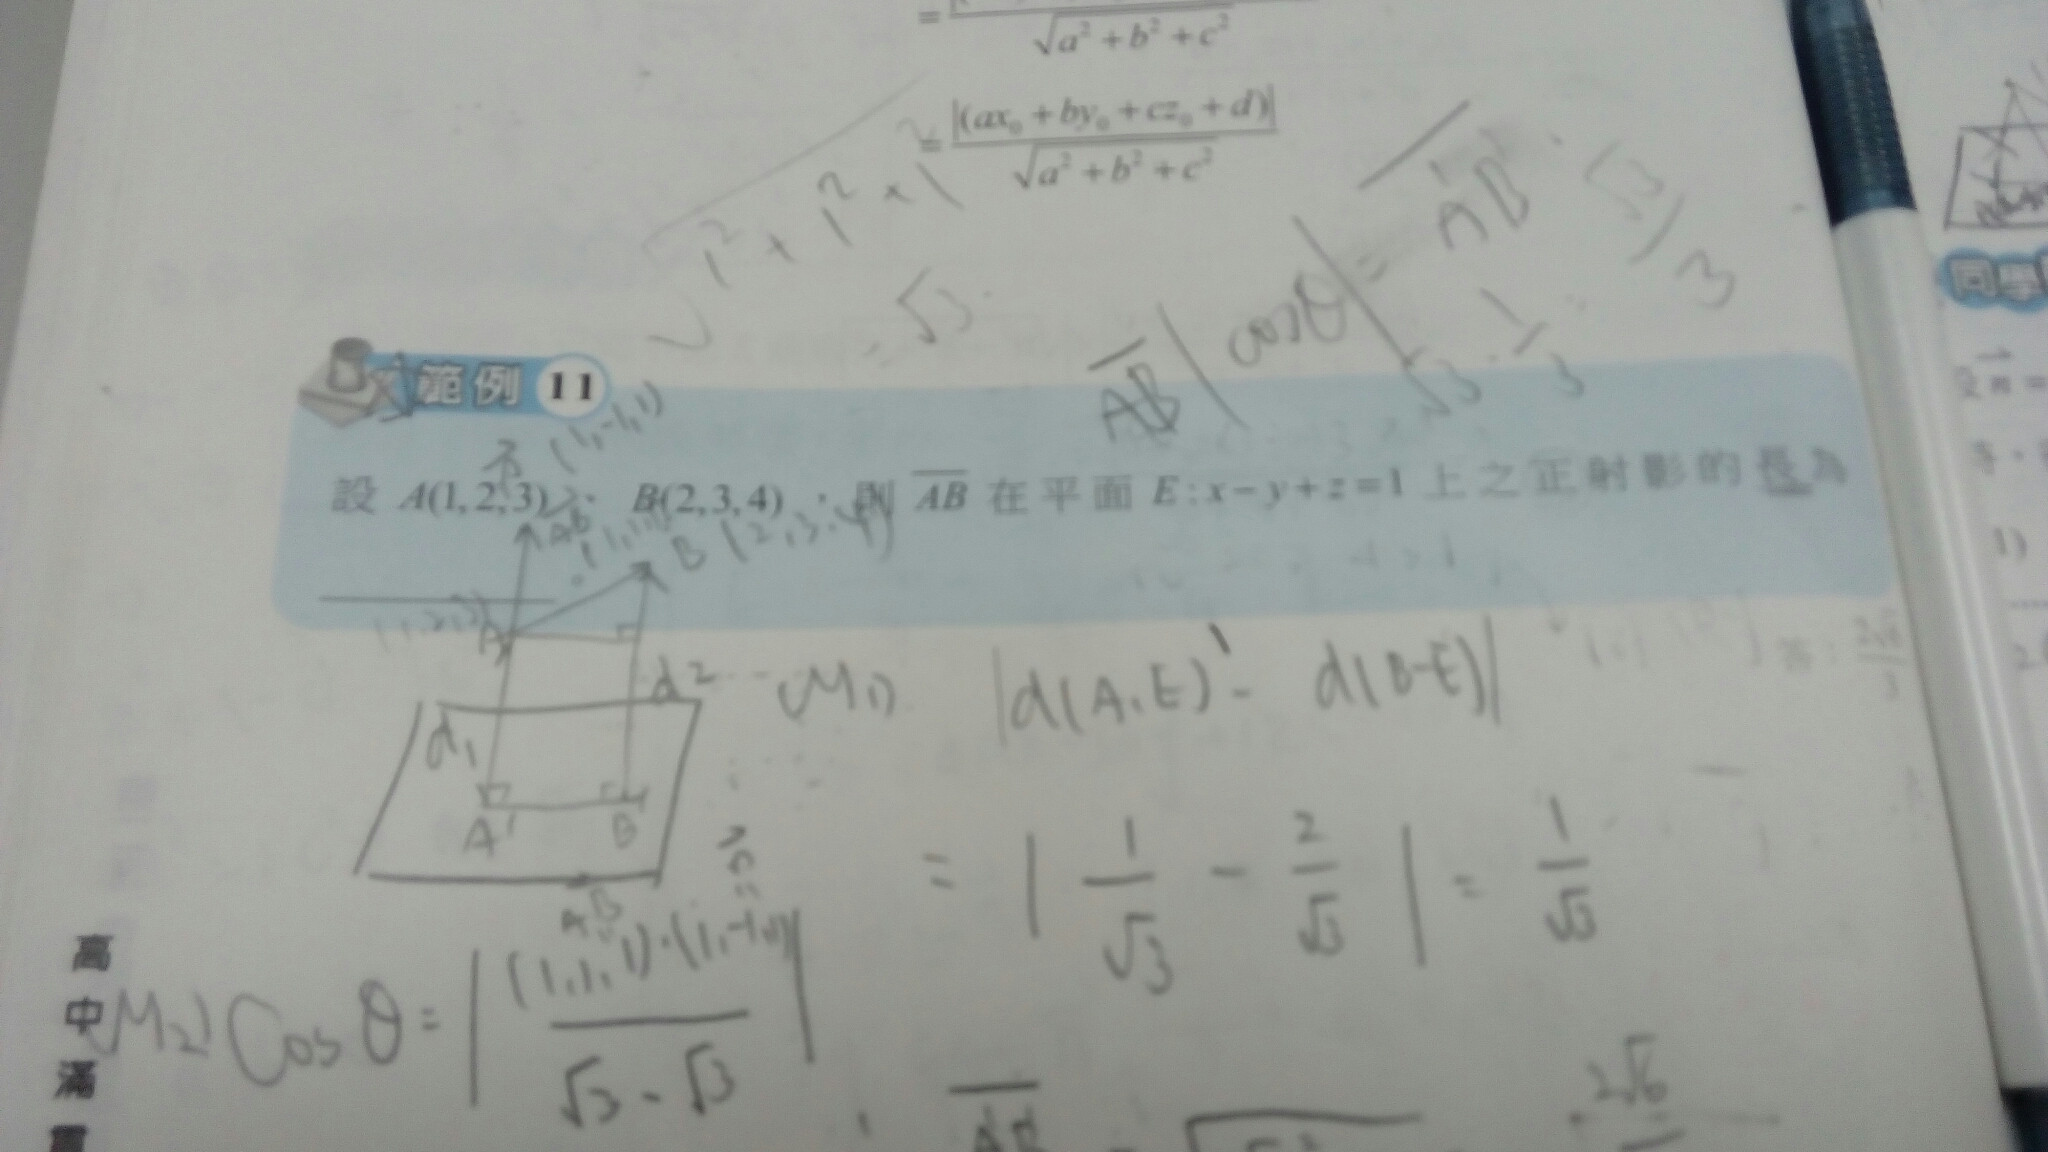 √a²+b²+c²
= |(ax₀+by₀+cz₀+d)| / √a²+b²+c²
√1²+1²+1² = √3
AB |cosθ| = A'B'
√3 · 1/3 = √3/3
範例 11
(1,-1,1)
設 A(1,2,3)、B(2,3,4),則 AB 在平面 E:x-y+z=1 上之正射影的長為
AB (1,1,1) B(2,3,4)
(1,2,3) A
答:2√6/3
d2 M1) |d(A,E) - d(B-E)|
d1
A' B'
= |1/√3 - 2/√3| = 1/√3
AB n
M2) Cosθ = |(1,1,1)·(1,-1,1) / √3-√3|
2√6
AB
高中滿
同學
1)